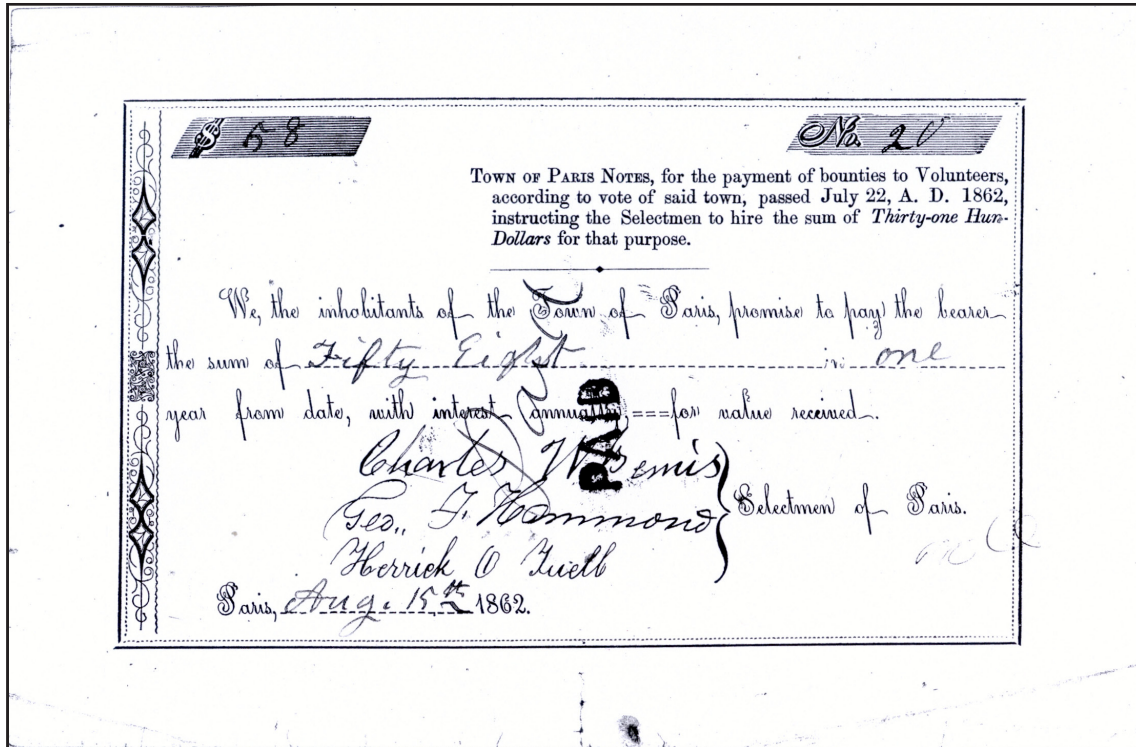 $ 58
No. 20
TOWN OF PARIS NOTES, for the payment of bounties to Volunteers,
according to vote of said town, passed July 22, A. D. 1862,
instructing the Selectmen to hire the sum of Thirty-one Hun-
Dollars for that purpose.
We, the inhabitants of the Town of Paris, promise to pay the bearer
the sum of Fifty Eight in one
year from date, with interest annually, for value received.
PAID
Charles W Bemis
Geo. F. Hammond
Selectmen of Paris.
Herrick O
Paris, Aug. 15th 1862.